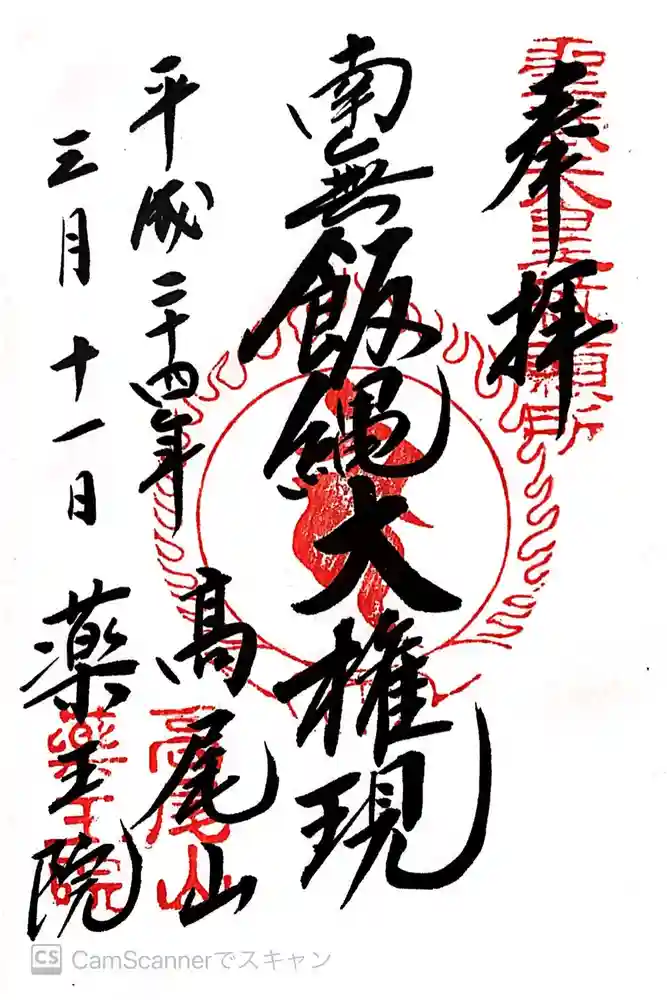 奉拝
南無飯縄大権現
平成二十四年
三月十一日
髙尾山
薬王院
高尾山
薬王院
CS CamScannerでスキャン